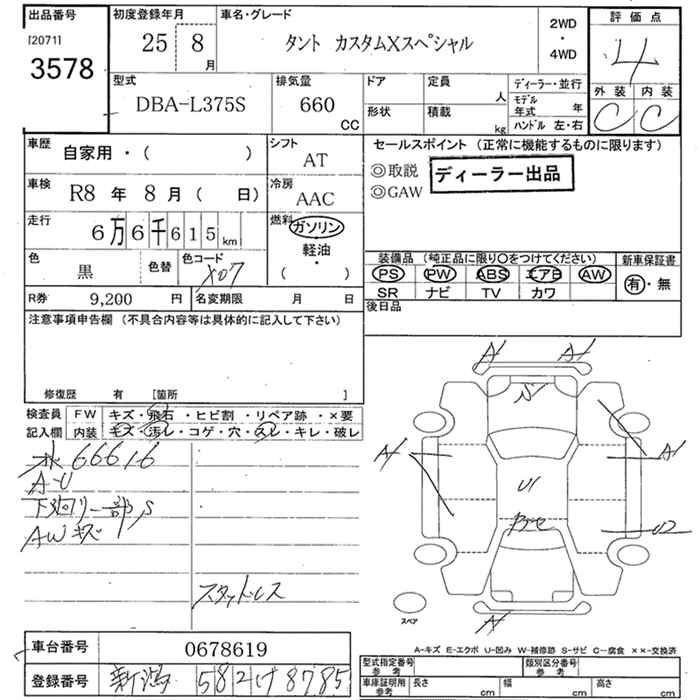 出品番号
[2071]
3578
初度登録年月
25 8
月
車名・グレード
タント カスタムXスペシャル
2WD
・
4WD
評価点
4
外装 内装
C C
型式
DBA-L375S
排気量
660
CC
ドア
形状
定員
人
積載
kg
ディーラー・並行
モデル
年式 年
ハンドル 左・右
車歴
自家用・( )
シフト
AT
車検
R8 年 8 月 ( 日)
冷房
AAC
走行
6万6千615km
燃料
ガソリン
軽油
・
( )
色
黒
色替
色コード
X07
R券
9,200 円
名変期限
月 日
セールスポイント (正常に機能するものに限ります)
◎取説
◎GAW
ディーラー出品
装備品 (純正品に限り○をつけてください)
PS PW ABS エアB AW
SR ナビ TV カワ
新車保証書
有・無
後日品
注意事項申告欄 (不具合内容等は具体的に記入して下さい)
修復歴 有 [箇所 ]
検査員
記入欄
FW キズ・飛石・ヒビ割・リペア跡・×要
内装 キズ・汚レ・コゲ・穴・スレ・キレ・破レ
66616
A-U
下廻リ一部S
AWキズ
スタッドレス
A A
A A1
U1
U2
A
スペア
A-キズ E-エクボ U-凹み W-補修跡 S-サビ C-腐食 ××-交換済
車台番号
0678619
登録番号
新潟 582 け 8785
型式指定番号
参考
類別区分番号
参考
車庫証明用
参考
長さ cm
幅 cm
高さ cm